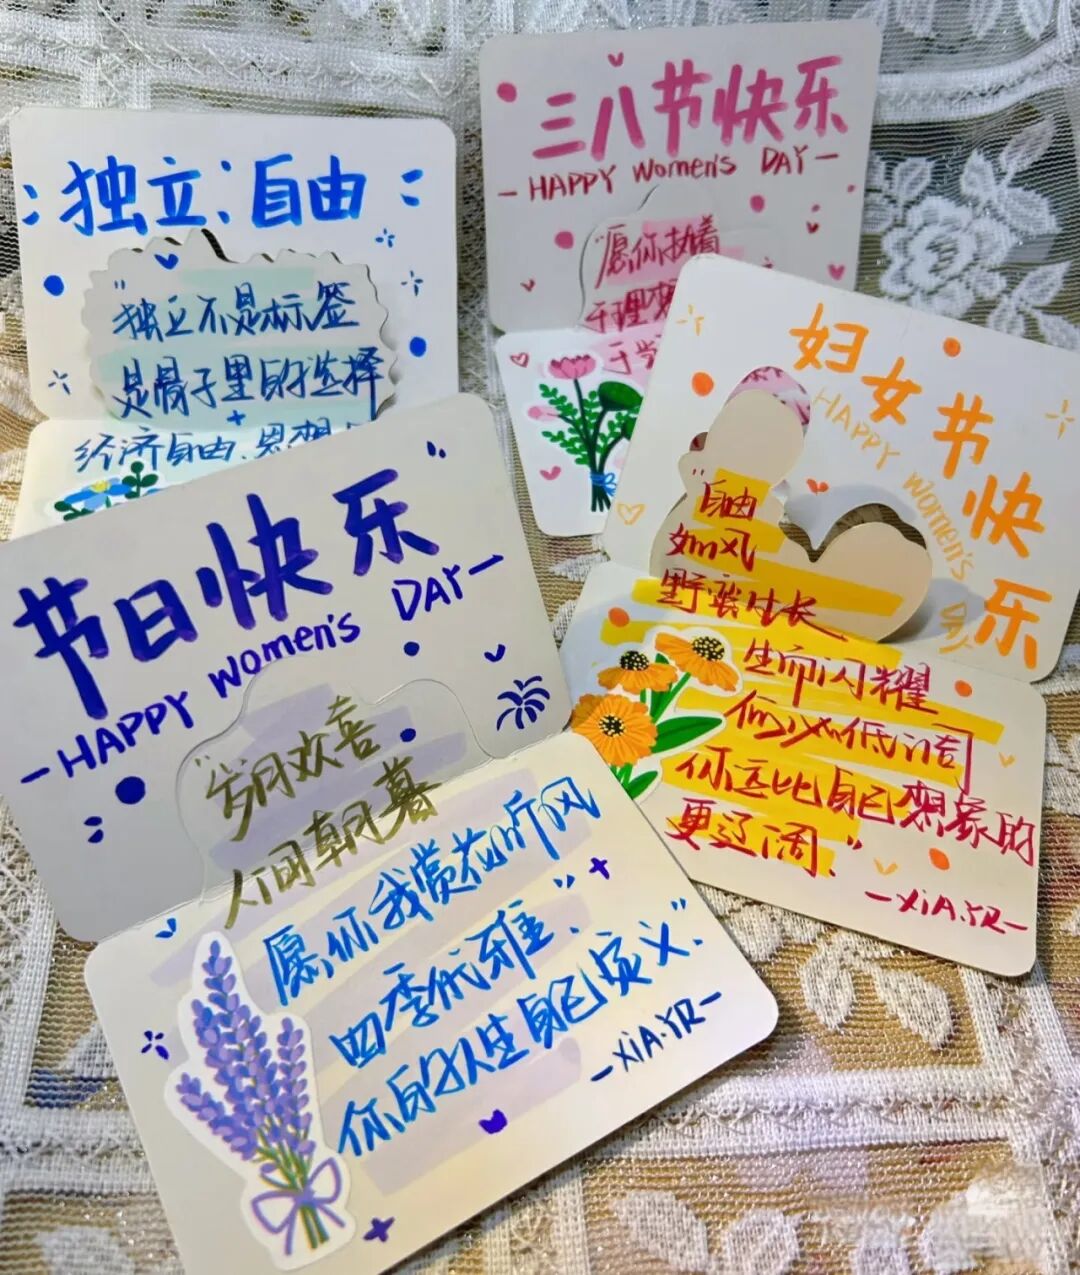 独立；自由
"独立不是标签
是骨子里的选择
经济自由、思想
三八节快乐
-HAPPY Women's DAY-
"愿你执着
于理想
于
妇女节快乐
HAPPY Women's DAY
"自由
如风
野蛮生长
生而闪耀
何必低调
你远比自己想象的
更辽阔."
-XiA.YR-
节日快乐
-HAPPY Women's DAY-
"岁月欢喜
人间朝暮
愿你我赏花听风
四季优雅"、
你的人生自己定义".
-XiA.YR-